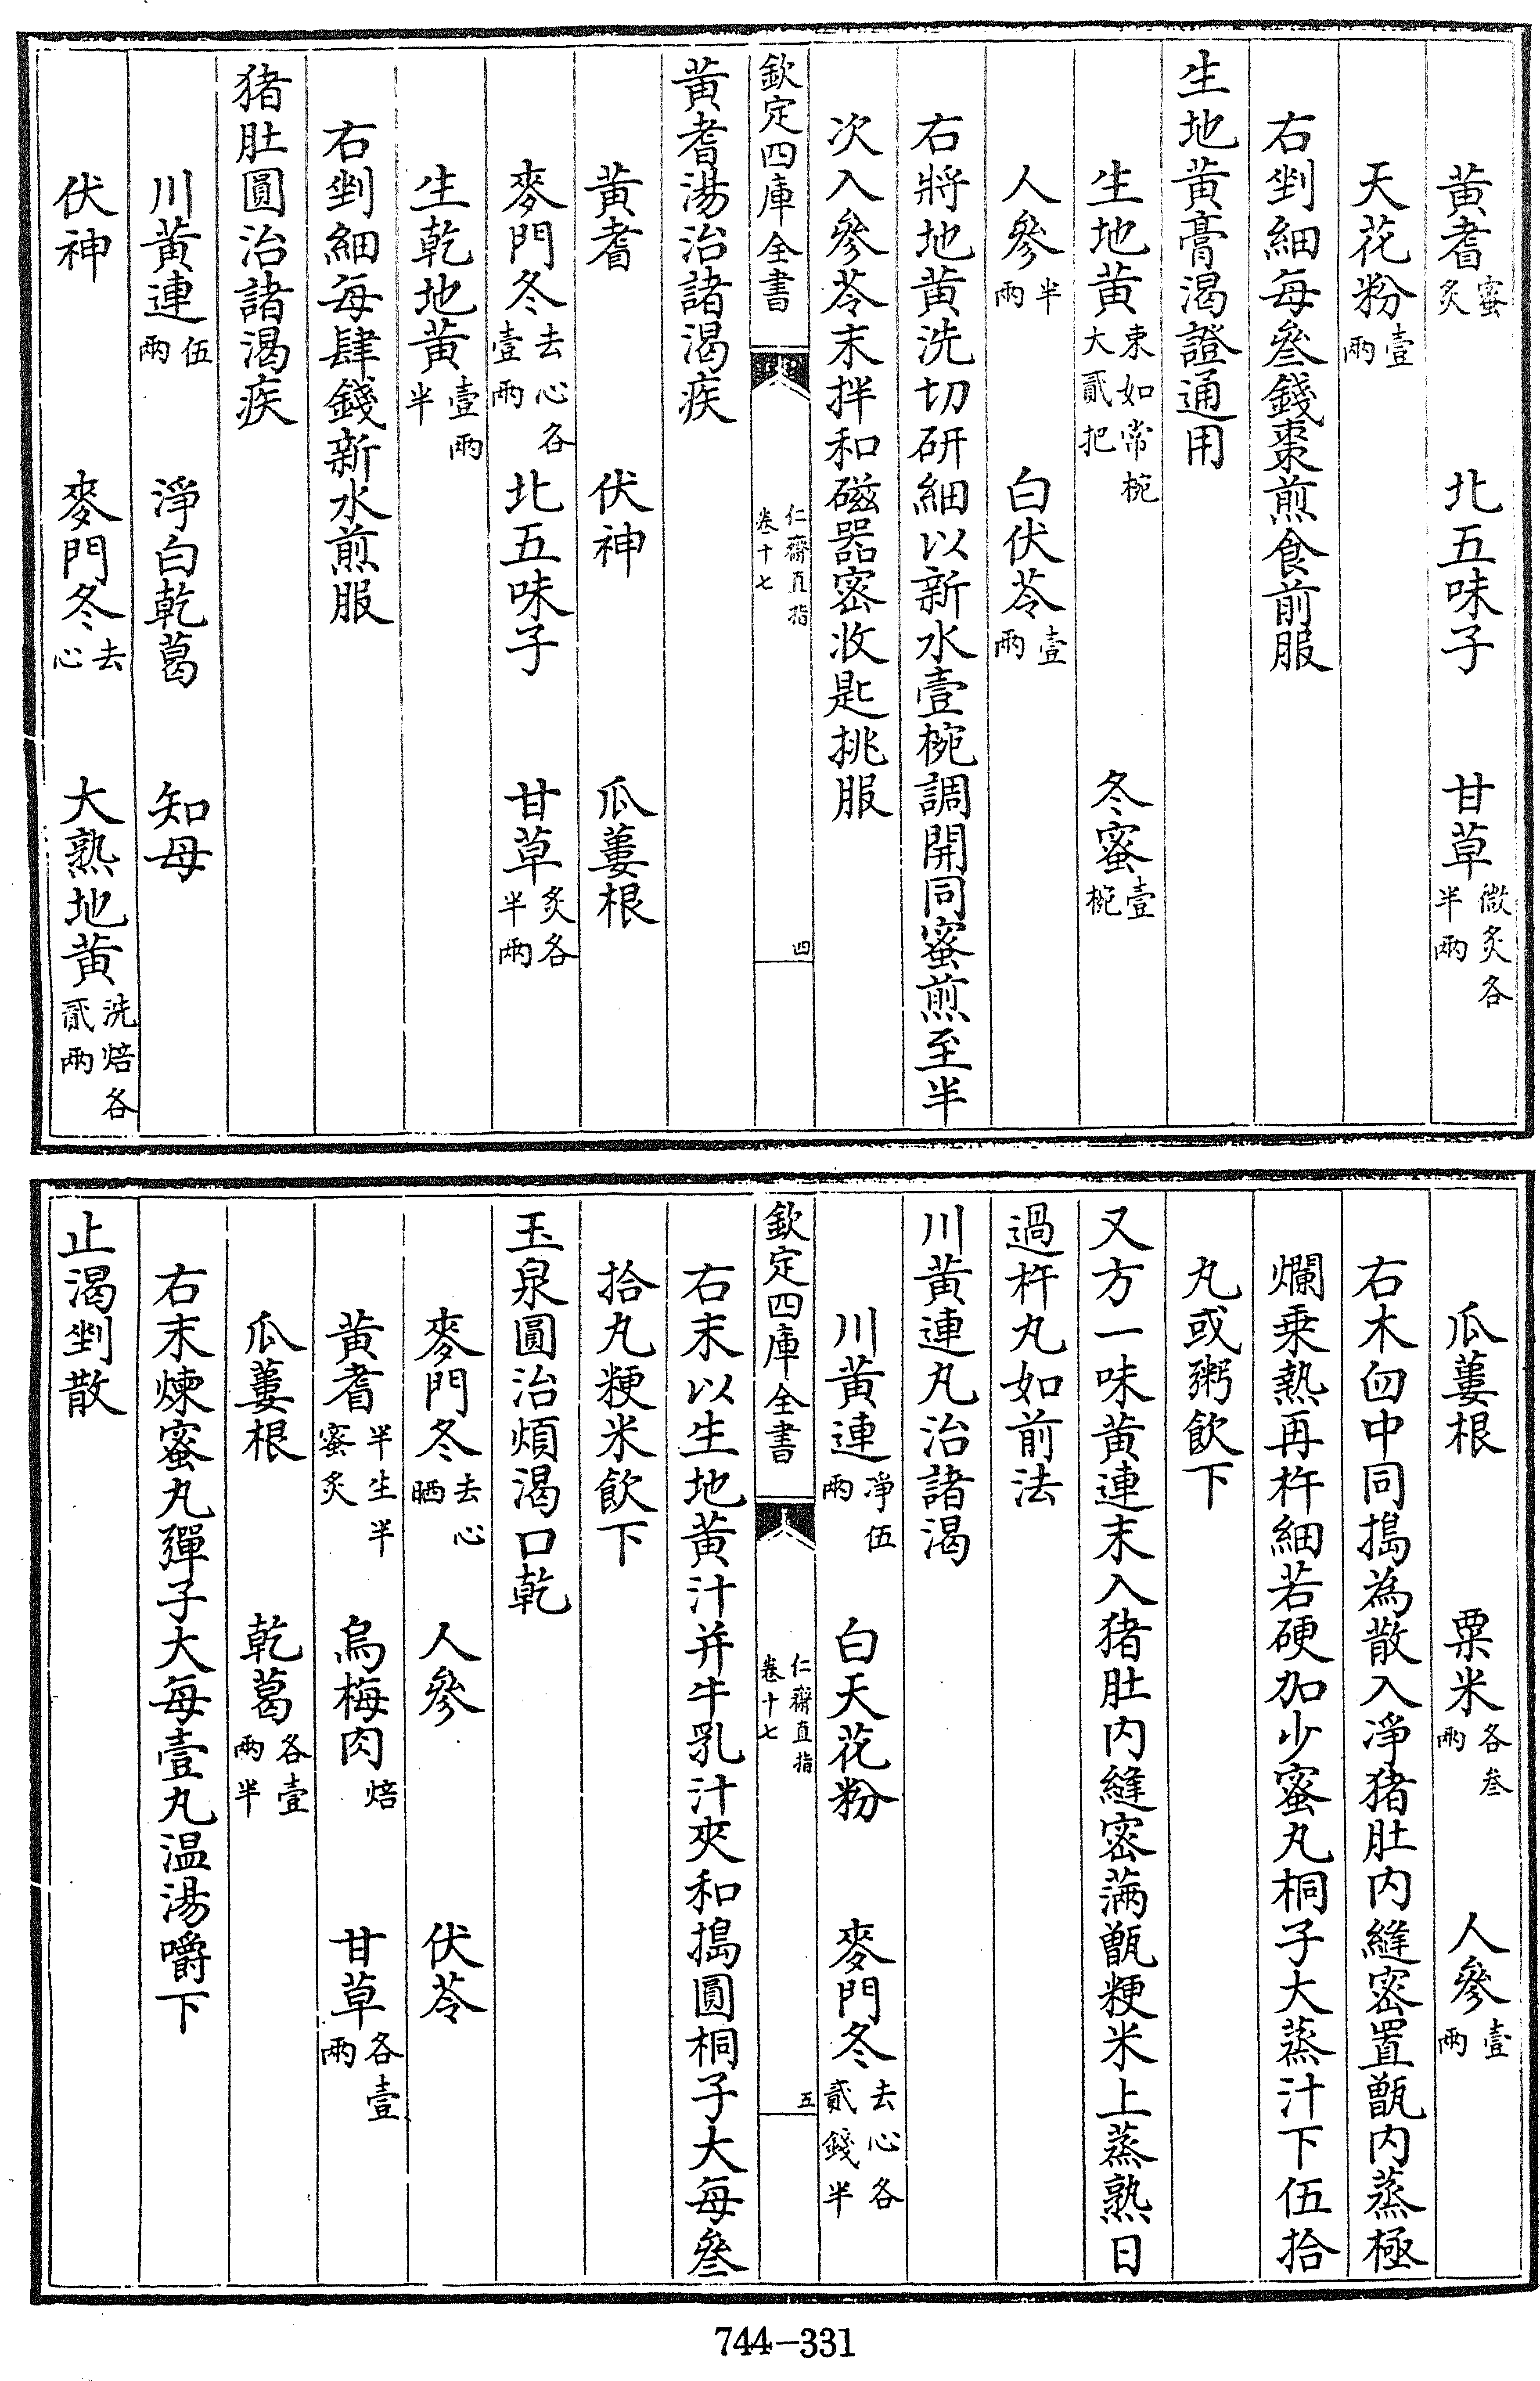 黄耆蜜炙　北五味子　甘草微炙各半兩
天花粉壹兩
右剉細每叄錢棗煎食前服
生地黄膏渴證通用
生地黄束如常椀大貳把　冬蜜壹椀
人參半兩　白伏苓壹兩
右將地黄洗切研細以新水壹椀調開同蜜煎至半
次入參苓末拌和磁器密收匙挑服
欽定四庫全書　仁齋直指卷十七　四
黄耆湯治諸渴疾
黄耆　伏神　瓜蔞根
麥門冬去心各壹兩　北五味子　甘草炙各半兩
生乾地黄壹兩半
右剉細每肆錢新水煎服
猪肚圓治諸渴疾
川黄連伍兩　淨白乾葛　知母
伏神　麥門冬去心　大熟地黄洗焙各貳兩
瓜蔞根　粟米各叁兩　人參壹兩
右木臼中同搗為散入淨猪肚内縫密置甑内蒸極
爛乗熱再杵細若硬加少蜜丸桐子大蒸汁下伍拾
丸或粥飲下
又方一味黄連末入猪肚内縫密滿甑粳米上蒸熟日
過杵丸如前法
川黄連丸治諸渴
川黄連淨伍兩　白天花粉　麥門冬去心各貳錢半
欽定四庫全書　仁齋直指卷十七　五
右末以生地黄汁并牛乳汁夾和搗圓桐子大每叄
拾丸粳米飲下
玉泉圓治煩渴口乾
麥門冬去心晒　人參　伏苓
黄耆半生半蜜炙　烏梅肉焙　甘草各壹兩
瓜蔞根　乾葛各壹兩半
右末煉蜜丸彈子大每壹丸温湯嚼下
止渴剉散
744-331